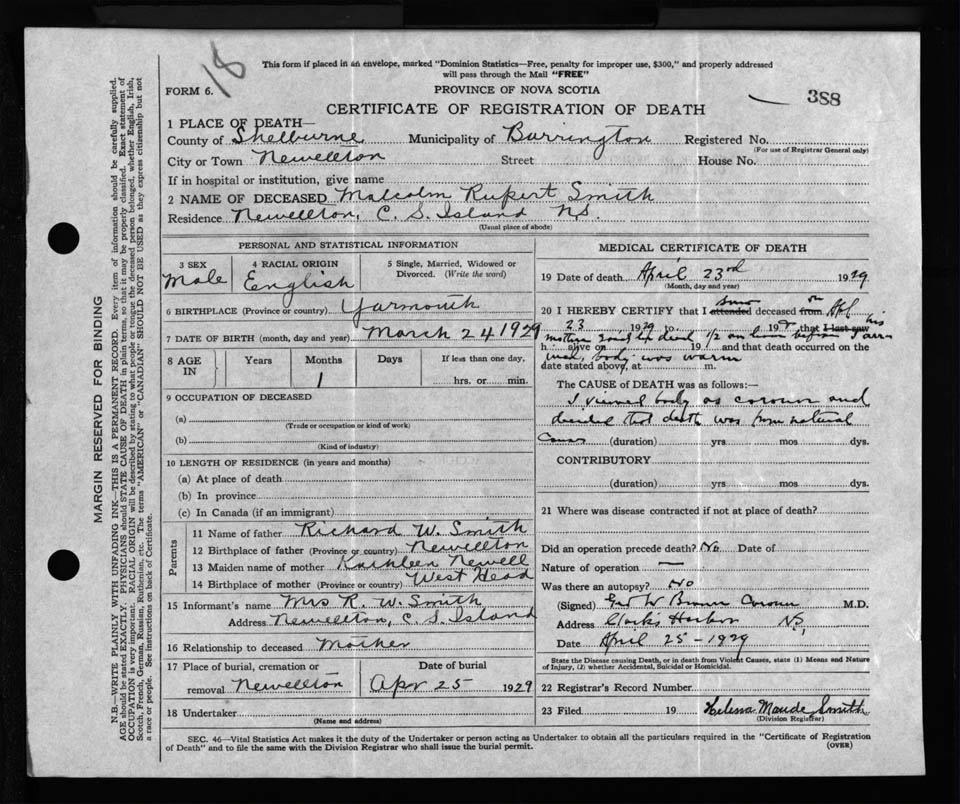 18
This form if placed in an envelope, marked "Dominion Statistics—Free, penalty for improper use, $300," and properly addressed
will pass through the Mail "FREE"
FORM 6.
PROVINCE OF NOVA SCOTIA
388
CERTIFICATE OF REGISTRATION OF DEATH
1 PLACE OF DEATH—
County of Shelburne Municipality of Barrington Registered No.
(For use of Registrar General only)
City or Town Newellton Street House No.
If in hospital or institution, give name
2 NAME OF DECEASED Malcolm Rupert Smith
Residence Newellton, C. S. Island N.S.
(Usual place of abode)
PERSONAL AND STATISTICAL INFORMATION
3 SEX 4 RACIAL ORIGIN 5 Single, Married, Widowed or
Divorced. (Write the word)
Male English
6 BIRTHPLACE (Province or country) Yarmouth
7 DATE OF BIRTH (month, day and year) March 24 1929
8 AGE IN Years Months Days If less than one day,
1 hrs. or min.
9 OCCUPATION OF DECEASED
(a)
(Trade or occupation or kind of work)
(b)
(Kind of industry)
10 LENGTH OF RESIDENCE (in years and months)
(a) At place of death
(b) In province
(c) In Canada (if an immigrant)
Parents
11 Name of father Richard W. Smith
12 Birthplace of father (Province or country) Newellton
13 Maiden name of mother Kathleen Newell
14 Birthplace of mother (Province or country) West Head
15 Informant's name Mrs R. W. Smith
Address Newellton, C. S. Island
16 Relationship to deceased Mother
17 Place of burial, cremation or Date of burial
removal Newellton Apr 25 1929
18 Undertaker
(Name and address)
MEDICAL CERTIFICATE OF DEATH
19 Date of death April 23rd 1929
(Month, day and year)
20 I HEREBY CERTIFY that I attended deceased from on
23 1929 to 192 that I last saw his
h alive on 19 and that death occurred on the
mother said he died 1/2 an hour before I arri
ved, body was warm
date stated above, at m.
The CAUSE of DEATH was as follows:—
I viewed body as coroner and
decided that death was from natural
causes (duration) yrs mos dys.
CONTRIBUTORY
(duration) yrs mos dys.
21 Where was disease contracted if not at place of death?
Did an operation precede death? No Date of
Nature of operation —
Was there an autopsy? No
(Signed) W Brown Coroner M.D.
Address Clarks Harbor N.S.
Date April 25 - 1929
State the Disease causing Death, or in death from Violent Causes, state (1) Means and Nature
of Injury, (2) whether Accidental, Suicidal or Homicidal.
22 Registrar's Record Number
23 Filed 19 Helena Maude Smith
(Division Registrar)
SEC. 46—Vital Statistics Act makes it the duty of the Undertaker or person acting as Undertaker to obtain all the particulars required in the "Certificate of Registration
of Death" and to file the same with the Division Registrar who shall issue the burial permit.
(OVER)
MARGIN RESERVED FOR BINDING
N.B.—WRITE PLAINLY WITH UNFADING INK—THIS IS A PERMANENT RECORD. Every item of information should be carefully supplied.
AGE should be stated EXACTLY. PHYSICIANS should STATE CAUSE OF DEATH in plain terms, so that it may be properly classified. Exact statement of
OCCUPATION is very important. RACIAL ORIGIN will be described by stating to what people or tongue the deceased person belonged, whether English, Irish,
Scotch, French, German, Russian, Ruthenian, etc. The terms "AMERICAN" or "CANADIAN" SHOULD NOT BE USED as they express citizenship but not
a race or people. See instructions on back of Certificate.